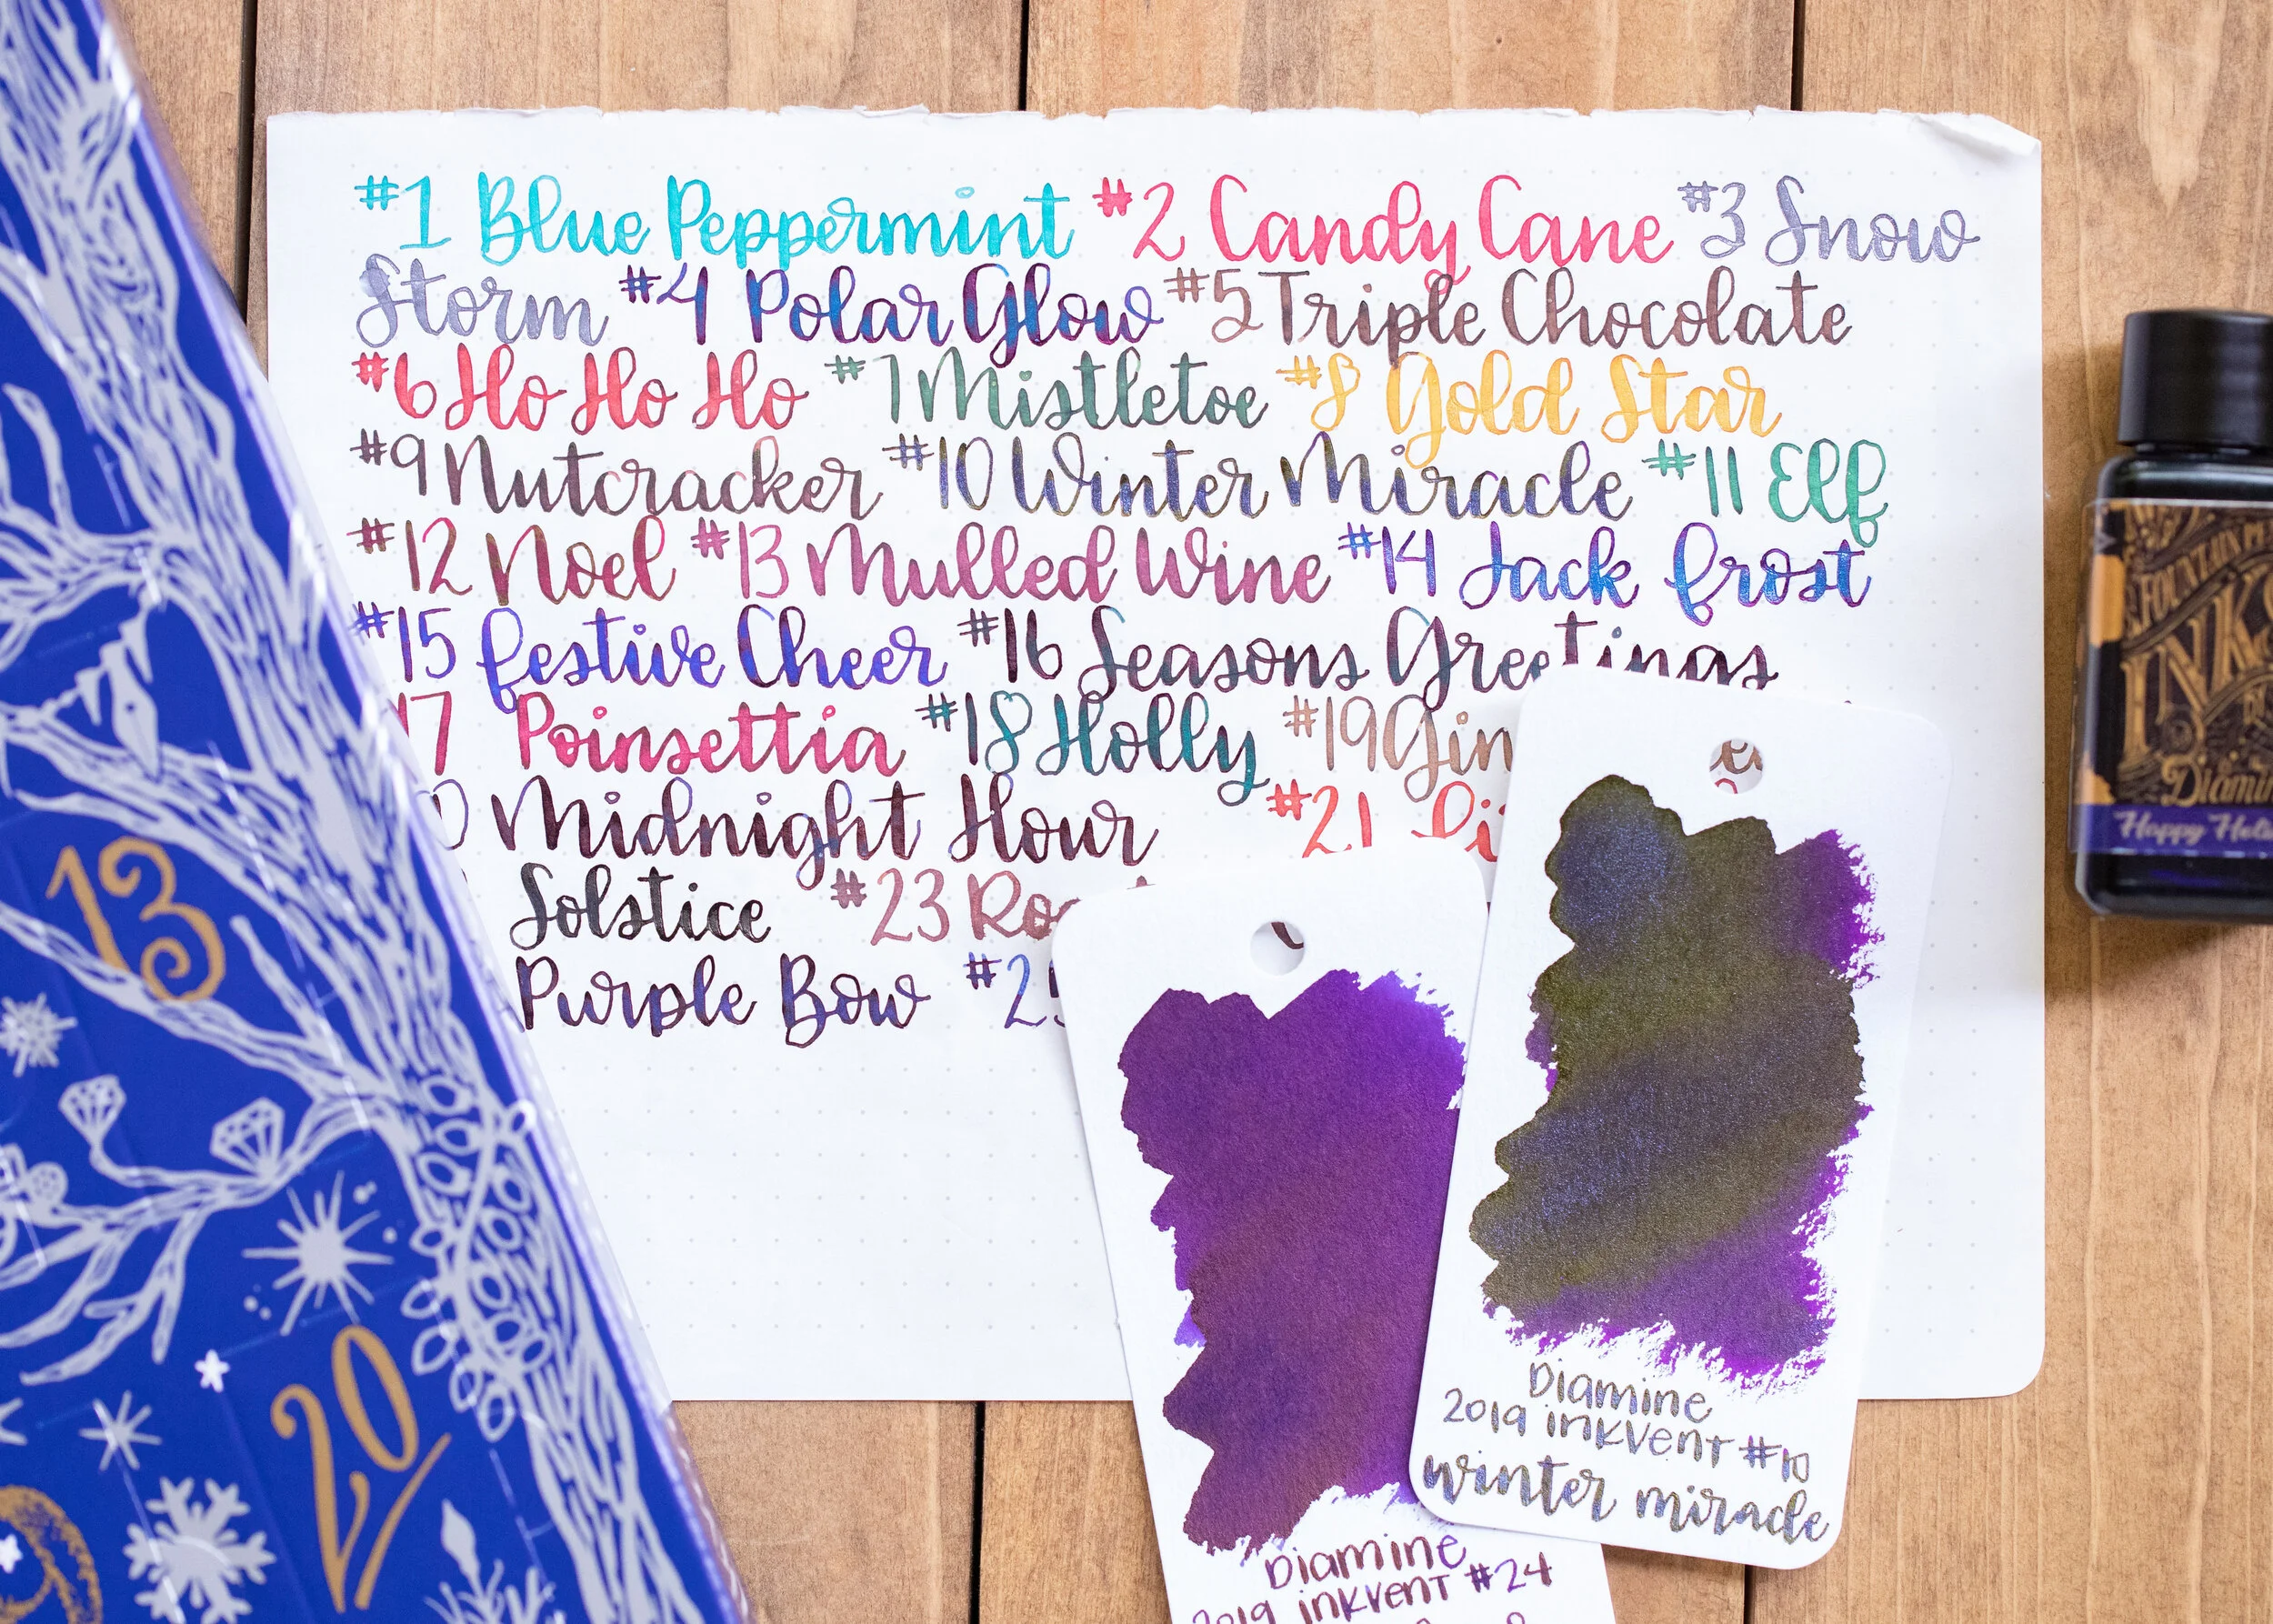 #1 Blue Peppermint #2 Candy Cane #3 Snow
Storm #4 Polar Glow #5 Triple Chocolate
#6 Ho Ho Ho #7 Mistletoe #8 Gold Star
#9 Nutcracker #10 Winter Miracle #11 Elf
#12 Noel #13 Mulled Wine #14 Jack Frost
#15 Festive Cheer #16 Seasons Greetings
17 Poinsettia #18 Holly #19
Midnight Hour #21
Solstice #23
Purple Bow
13
20
FOUNTAIN
INKS
Happy
Diamine
2019 inkvent #10
winter miracle
Diamine
2019 inkvent #24